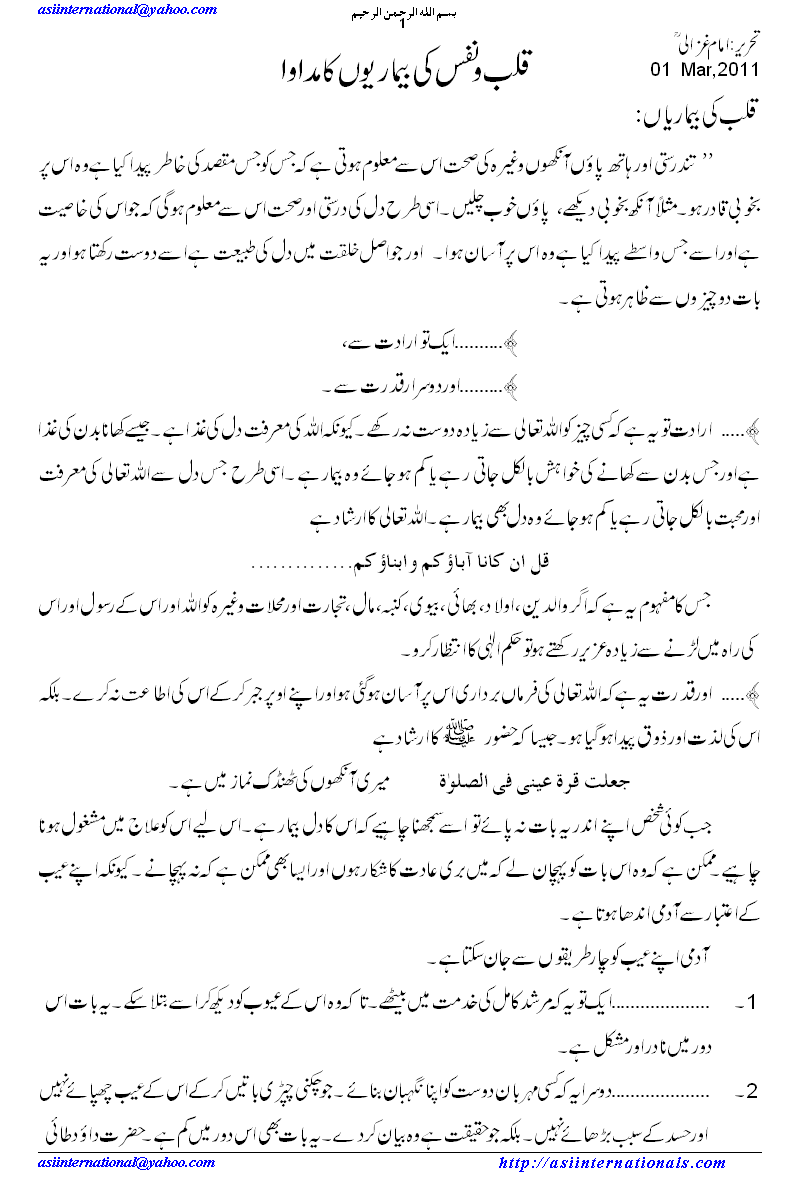 asiinternational@yahoo.com
بسم الله الرحمن الرحيم
1
تحریر: امام غزالیؒ
01 Mar,2011
قلب و نفس کی بیماریوں کا مداوا
قلب کی بیماریاں:
’’ تندرستی اور ہاتھ پاؤں آنکھوں وغیرہ کی صحت اس سے معلوم ہوتی ہے کہ جس کو جس مقصد کی خاطر پیدا کیا ہے وہ اس پر
بخوبی قادر ہو۔ مثلاً آنکھ بخوبی دیکھے، پاؤں خوب چلیں۔ اسی طرح دل کی درستی اور صحت اس سے معلوم ہوگی کہ جو اس کی خاصیت
ہے اور اسے جس واسطے پیدا کیا ہے وہ اس پر آسان ہوا۔ اور جو اصل خلقت میں دل کی طبیعت ہے اسے دوست رکھتا ہو اور یہ
بات دو چیزوں سے ظاہر ہوتی ہے۔
﴾..........ایک تو ارادت سے،
﴾.........اور دوسرا قدرت سے۔
﴾..... ارادت تو یہ ہے کہ کسی چیز کو اللہ تعالی سے زیادہ دوست نہ رکھے۔ کیونکہ اللہ کی معرفت دل کی غذا ہے۔ جیسے کھانا بدن کی غذا
ہے اور جس بدن سے کھانے کی خواہش بالکل جاتی رہے یا کم ہو جائے وہ بیمار ہے۔ اسی طرح جس دل سے اللہ تعالی کی معرفت
اور محبت بالکل جاتی رہے یا کم ہو جائے وہ دل بھی بیمار ہے۔ اللہ تعالی کا ارشاد ہے
قل ان کانا آباؤکم وابناؤکم..............
جس کا مفہوم یہ ہے کہ اگر والدین، اولاد، بھائی، بیوی، کنبہ، مال، تجارت اور محلات وغیرہ کو اللہ اور اس کے رسول اور اس
کی راہ میں لڑنے سے زیادہ عزیز رکھتے ہو تو حکم الٰہی کا انتظار کرو۔
﴾..... اور قدرت یہ ہے کہ اللہ تعالی کی فرماں برداری اس پر آسان ہوگئی ہو اور اپنے اوپر جبر کرکے اس کی اطاعت نہ کرے۔ بلکہ
اس کی لذت اور ذوق پیدا ہوگیا ہو۔ جیسا کہ حضور ﷺ کا ارشاد ہے
جعلت قرۃ عینی فی الصلوٰۃ میری آنکھوں کی ٹھنڈک نماز میں ہے۔
جب کوئی شخص اپنے اندر یہ بات نہ پائے تو اسے سمجھنا چاہیے کہ اس کا دل بیمار ہے۔ اس لیے اس کو علاج میں مشغول ہونا
چاہیے۔ ممکن ہے کہ وہ اس بات کو پہچان لے کہ میں بری عادت کا شکار ہوں اور ایسا بھی ممکن ہے کہ نہ پہچانے۔ کیونکہ اپنے عیب
کے اعتبار سے آدمی اندھا ہوتا ہے۔
آدمی اپنے عیب کو چار طریقوں سے جان سکتا ہے۔
1۔ ....................ایک تو یہ کہ مرشد کامل کی خدمت میں بیٹھے۔ تاکہ وہ اس کے عیوب کو دیکھ کر اسے بتلا سکے۔ یہ بات اس
دور میں نادر اور مشکل ہے۔
2۔ ....................دوسرا یہ کہ کسی مہربان دوست کو اپنا نگہبان بنائے۔ جو چکنی چپڑی باتیں کرکے اس کے عیب چھپائے نہیں
اور حسد کے سبب بڑھائے نہیں۔ بلکہ جو حقیقت ہے وہ بیان کر دے۔ یہ بات بھی اس دور میں کم ہے۔ حضرت داؤد طائی
asiinternational@yahoo.com
http://asiinternationals.com